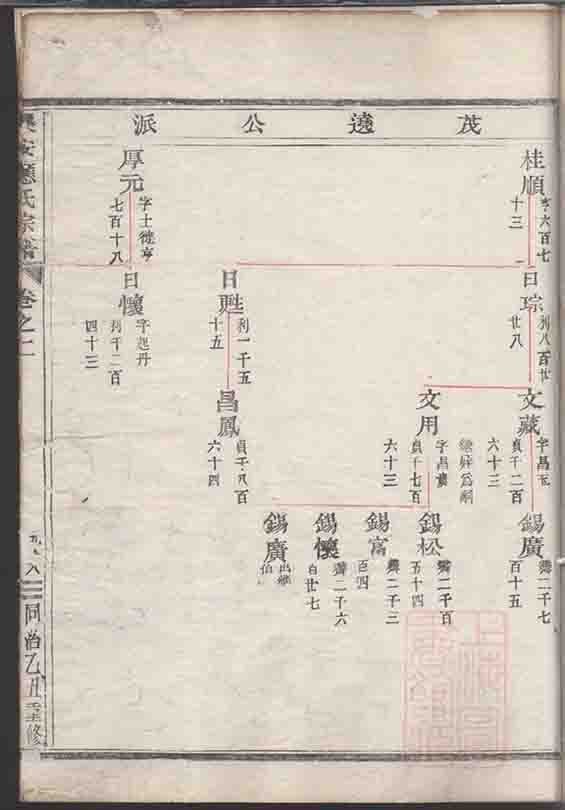 茂遶公派
桂順
亨六百七
十三
曰琮
利八百廿
廿八
文藏
字昌玉
貞千二百
六十三
錫廣
濟二千七
百十五
文用
字昌
貞千七百
六十三
錫松
濟二千百
五十四
錫富
濟二千三
百四
錫懷
濟二千六
百廿七
錫廣
出繼
伯
曰甦
利一千五
十五
昌鳳
貞千八百
六十四
厚元
字士德亨
七百十八
曰懷
字起丹
利千二百
四十三
應氏宗譜
卷之二
同治乙丑重修